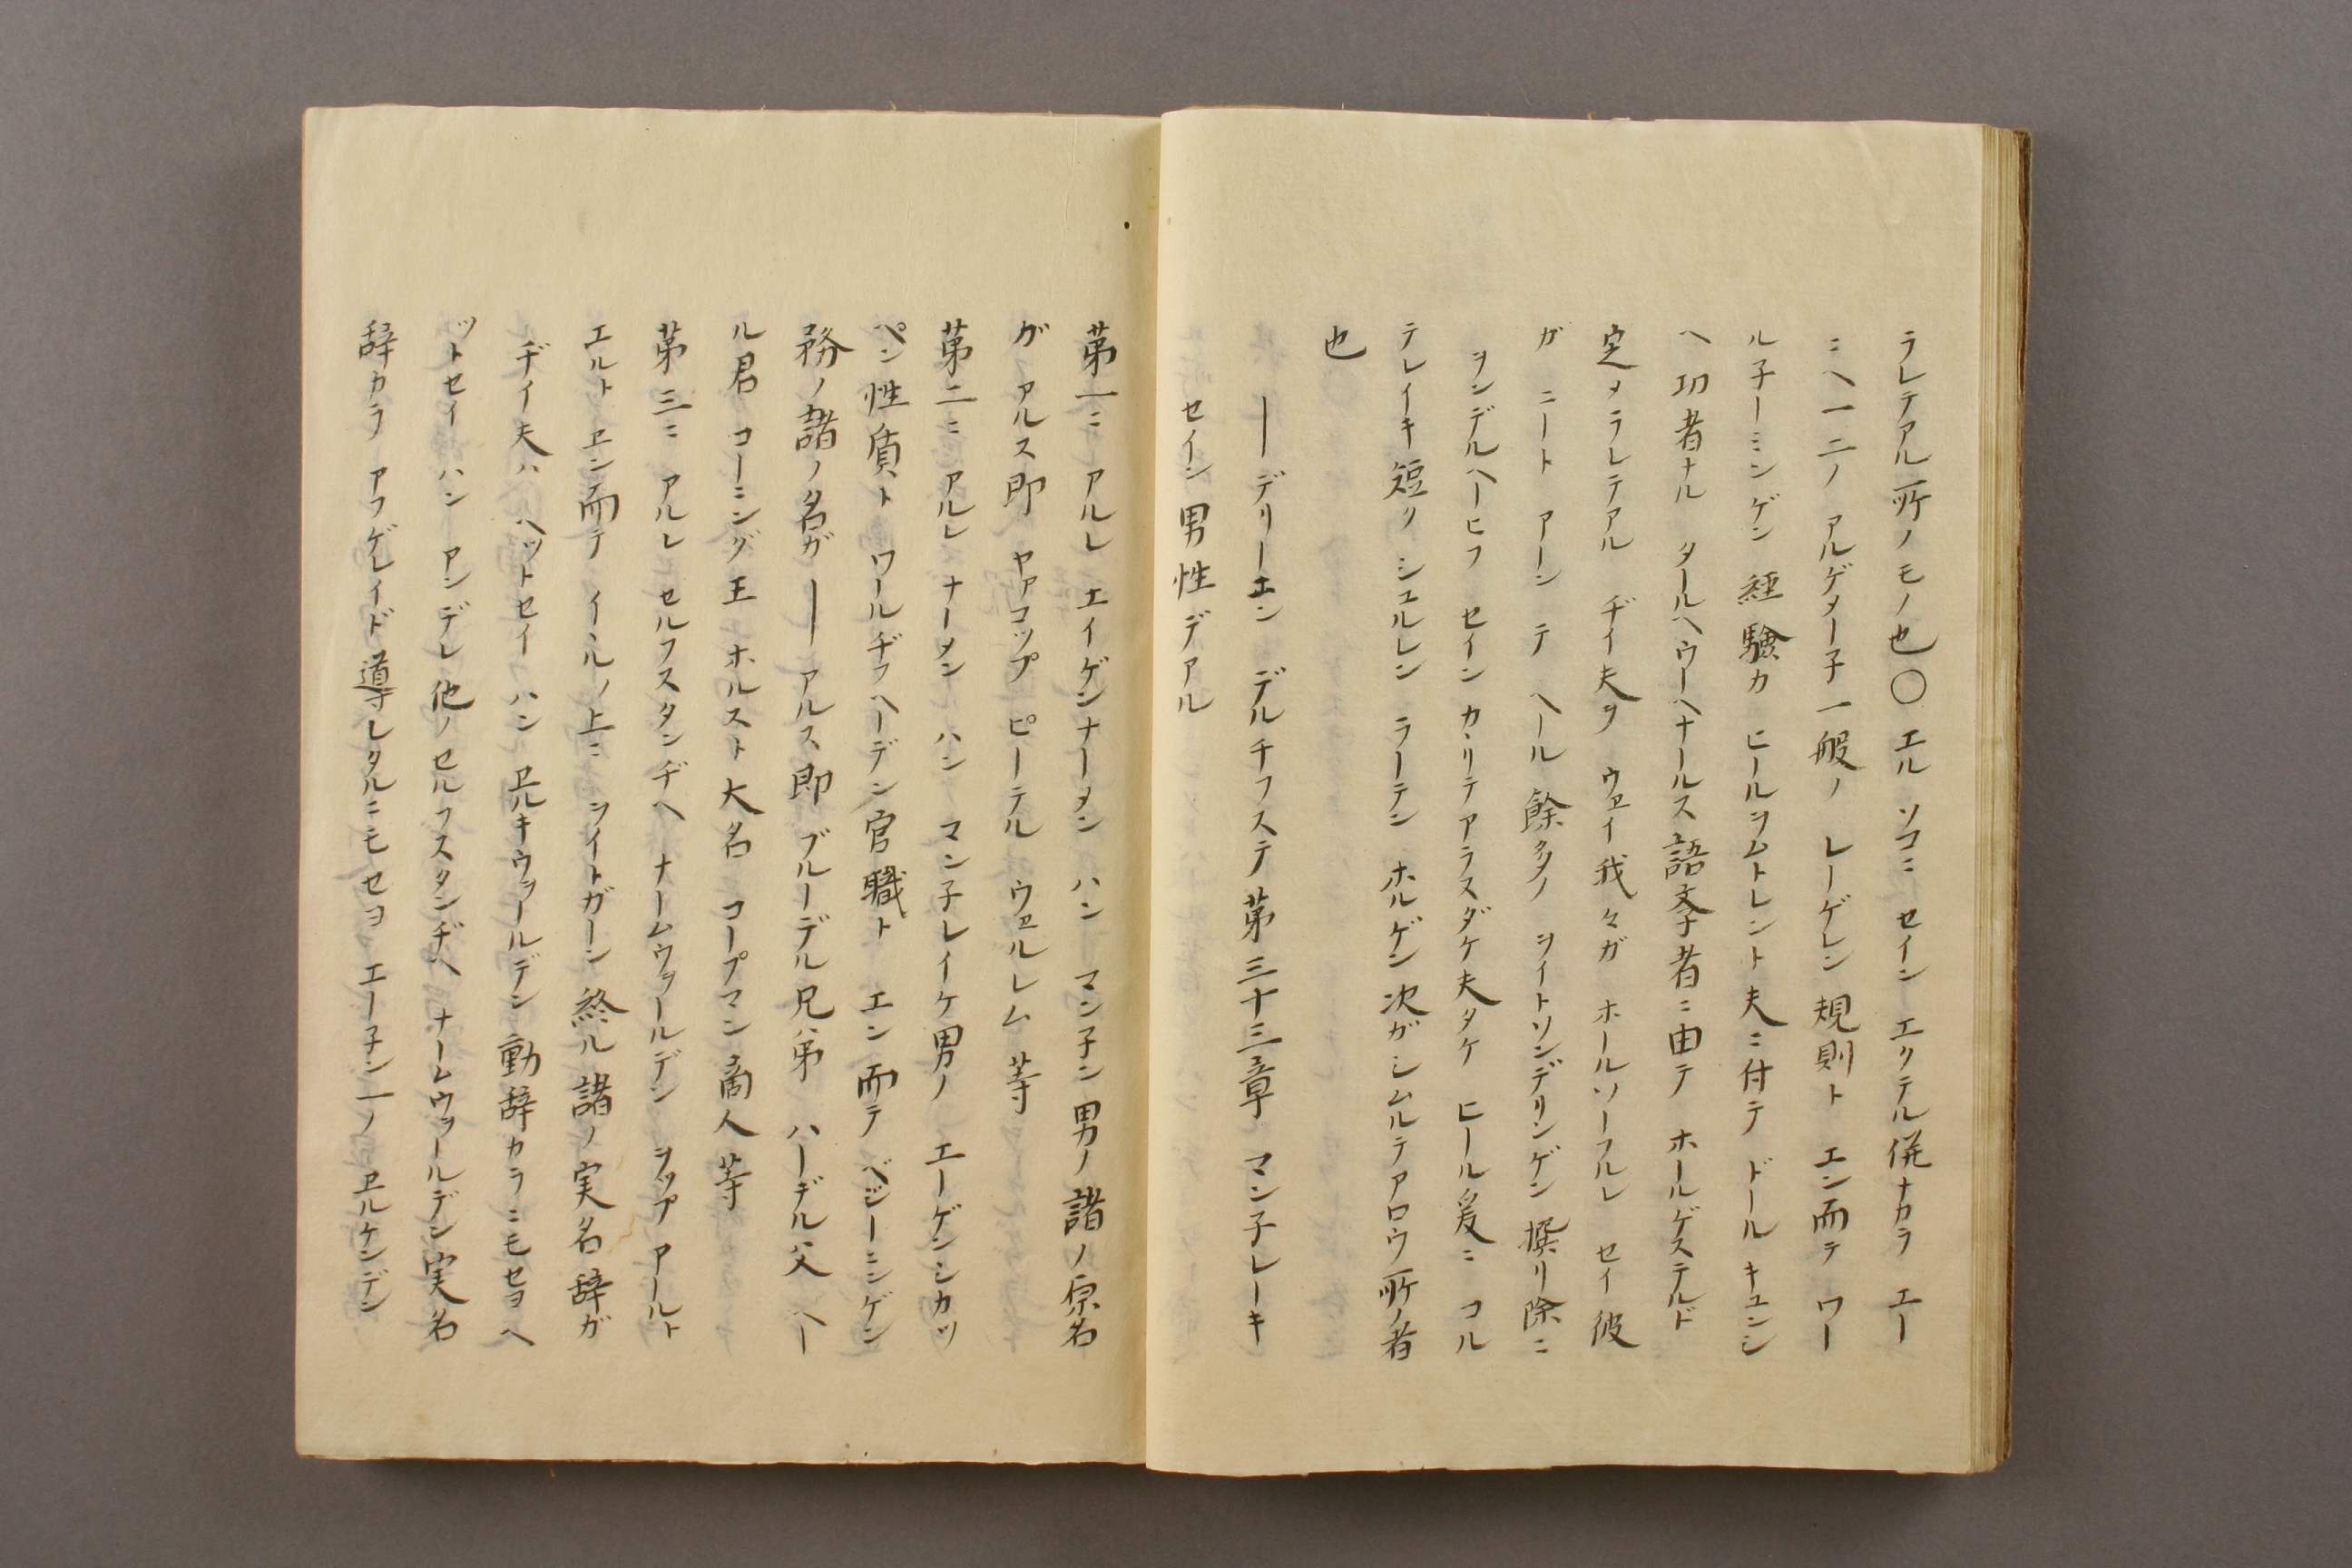 ラレテアル所ノモノ也〇エル ソコニ セイン エクテル併ナカラ エー
ニヘ一二ノ アルゲメー子一般ノ レーゲレン 規則ト エン而テ ワー
ル子ーミンゲン 経驗カ ヒールヲムトレント夫ニ付テ ドール キュンシ
ヘ 功者ナル タールヘウーヘナールス語学者ニ由テ ホールゲステルド
定メラレテアル ヂイ夫ヲ ウェイ我々ガ ホールソーフルレ セイ彼
ガ ニート アーン テ ヘール餘多ノ ヲイトソンデリンゲン 撰リ除ニ
ヲンデルヘーヒフ セイン カヽリテアラスダケ夫タケ ヒール爰ニ コル
テレイキ短ク シュルレン ラーテン ホルゲン次ガシムルテアロウ所ノ者
也
｜デリーエン デルチフステ第三十三章 マン子レーキ
セイン男性デアル
第一ニ アルレ エイゲンナーメン ハン マン子ン男ノ諸ノ原名
ガ アルス即 ヤアコップ ピーテル ウェルレム 等
第二ニ アルレ ナーメン ハン マン子レイケ男ノ エーゲンシカッ
ペン性質ト ワールヂフヘーデン官職ト エン而テ ベジーミンゲン
務ノ諸ノ名ガ｜アルス即ブルーデル兄弟 ハーデル父 ヘー
ル君 コーニング王 ホルスト大名 コープマン商人等
第三ニ アルレ セルフスタンヂヘ ナームウヲールデン ヲップ アールト
エルト エン而テ イヽルノ上ニ ヲイトガーン終ル諸ノ実名辞ガ
ヂイ夫ハ ヘットセイ ハン ヱルキウヲールデン動辞カラニモセヨヘ
ットセイ ハン アンデレ他ノセルフスタンヂヘ ナームウヲールデン実名
辞カラ アフゲレイド導レタルニモセヨ エー子ン一ノ ヱルケンデン